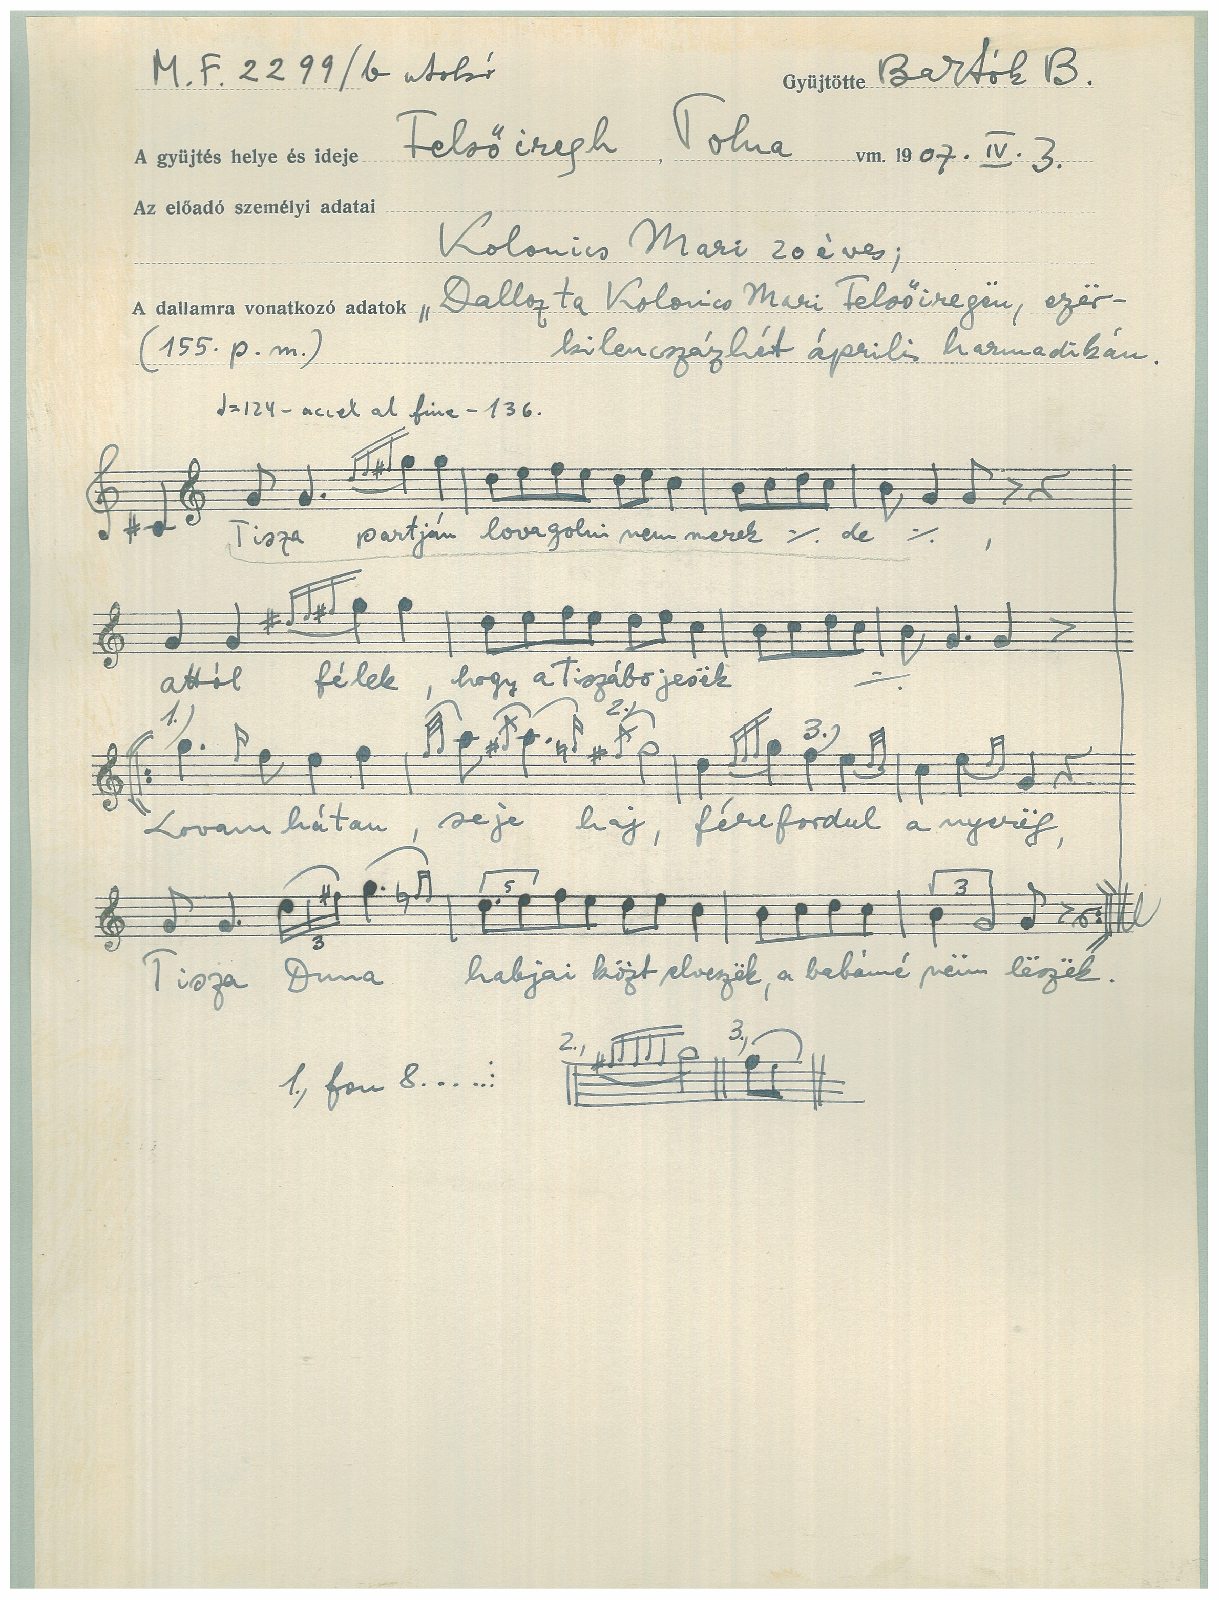 M.F. 2299/b utolsó
Gyüjtötte Bartók B.
A gyüjtés helye és ideje Felsőiregh, Tolna vm. 1907. IV. 3.
Az előadó személyi adatai
Kolonics Mari 20 éves;
A dallamra vonatkozó adatok „Dallozta Kolonics Mari Felsőiregën, ezër-
(155. p. m.) kilencszázhét április harmadikán.
♩=124 - accel al fine - 136.
Tisza partján lovagolni nem merek ·/. de ·/. ,
attól félek, hogy a Tiszábo jesëk
1.) 2., 3.,
Lovam hátan, seje haj, férefordul a nyerëg,
5 3
3
Tisza Duna habjai közt elveszëk, a babámé nëm lëszëk.
2., 3.,
1., fon 8.......